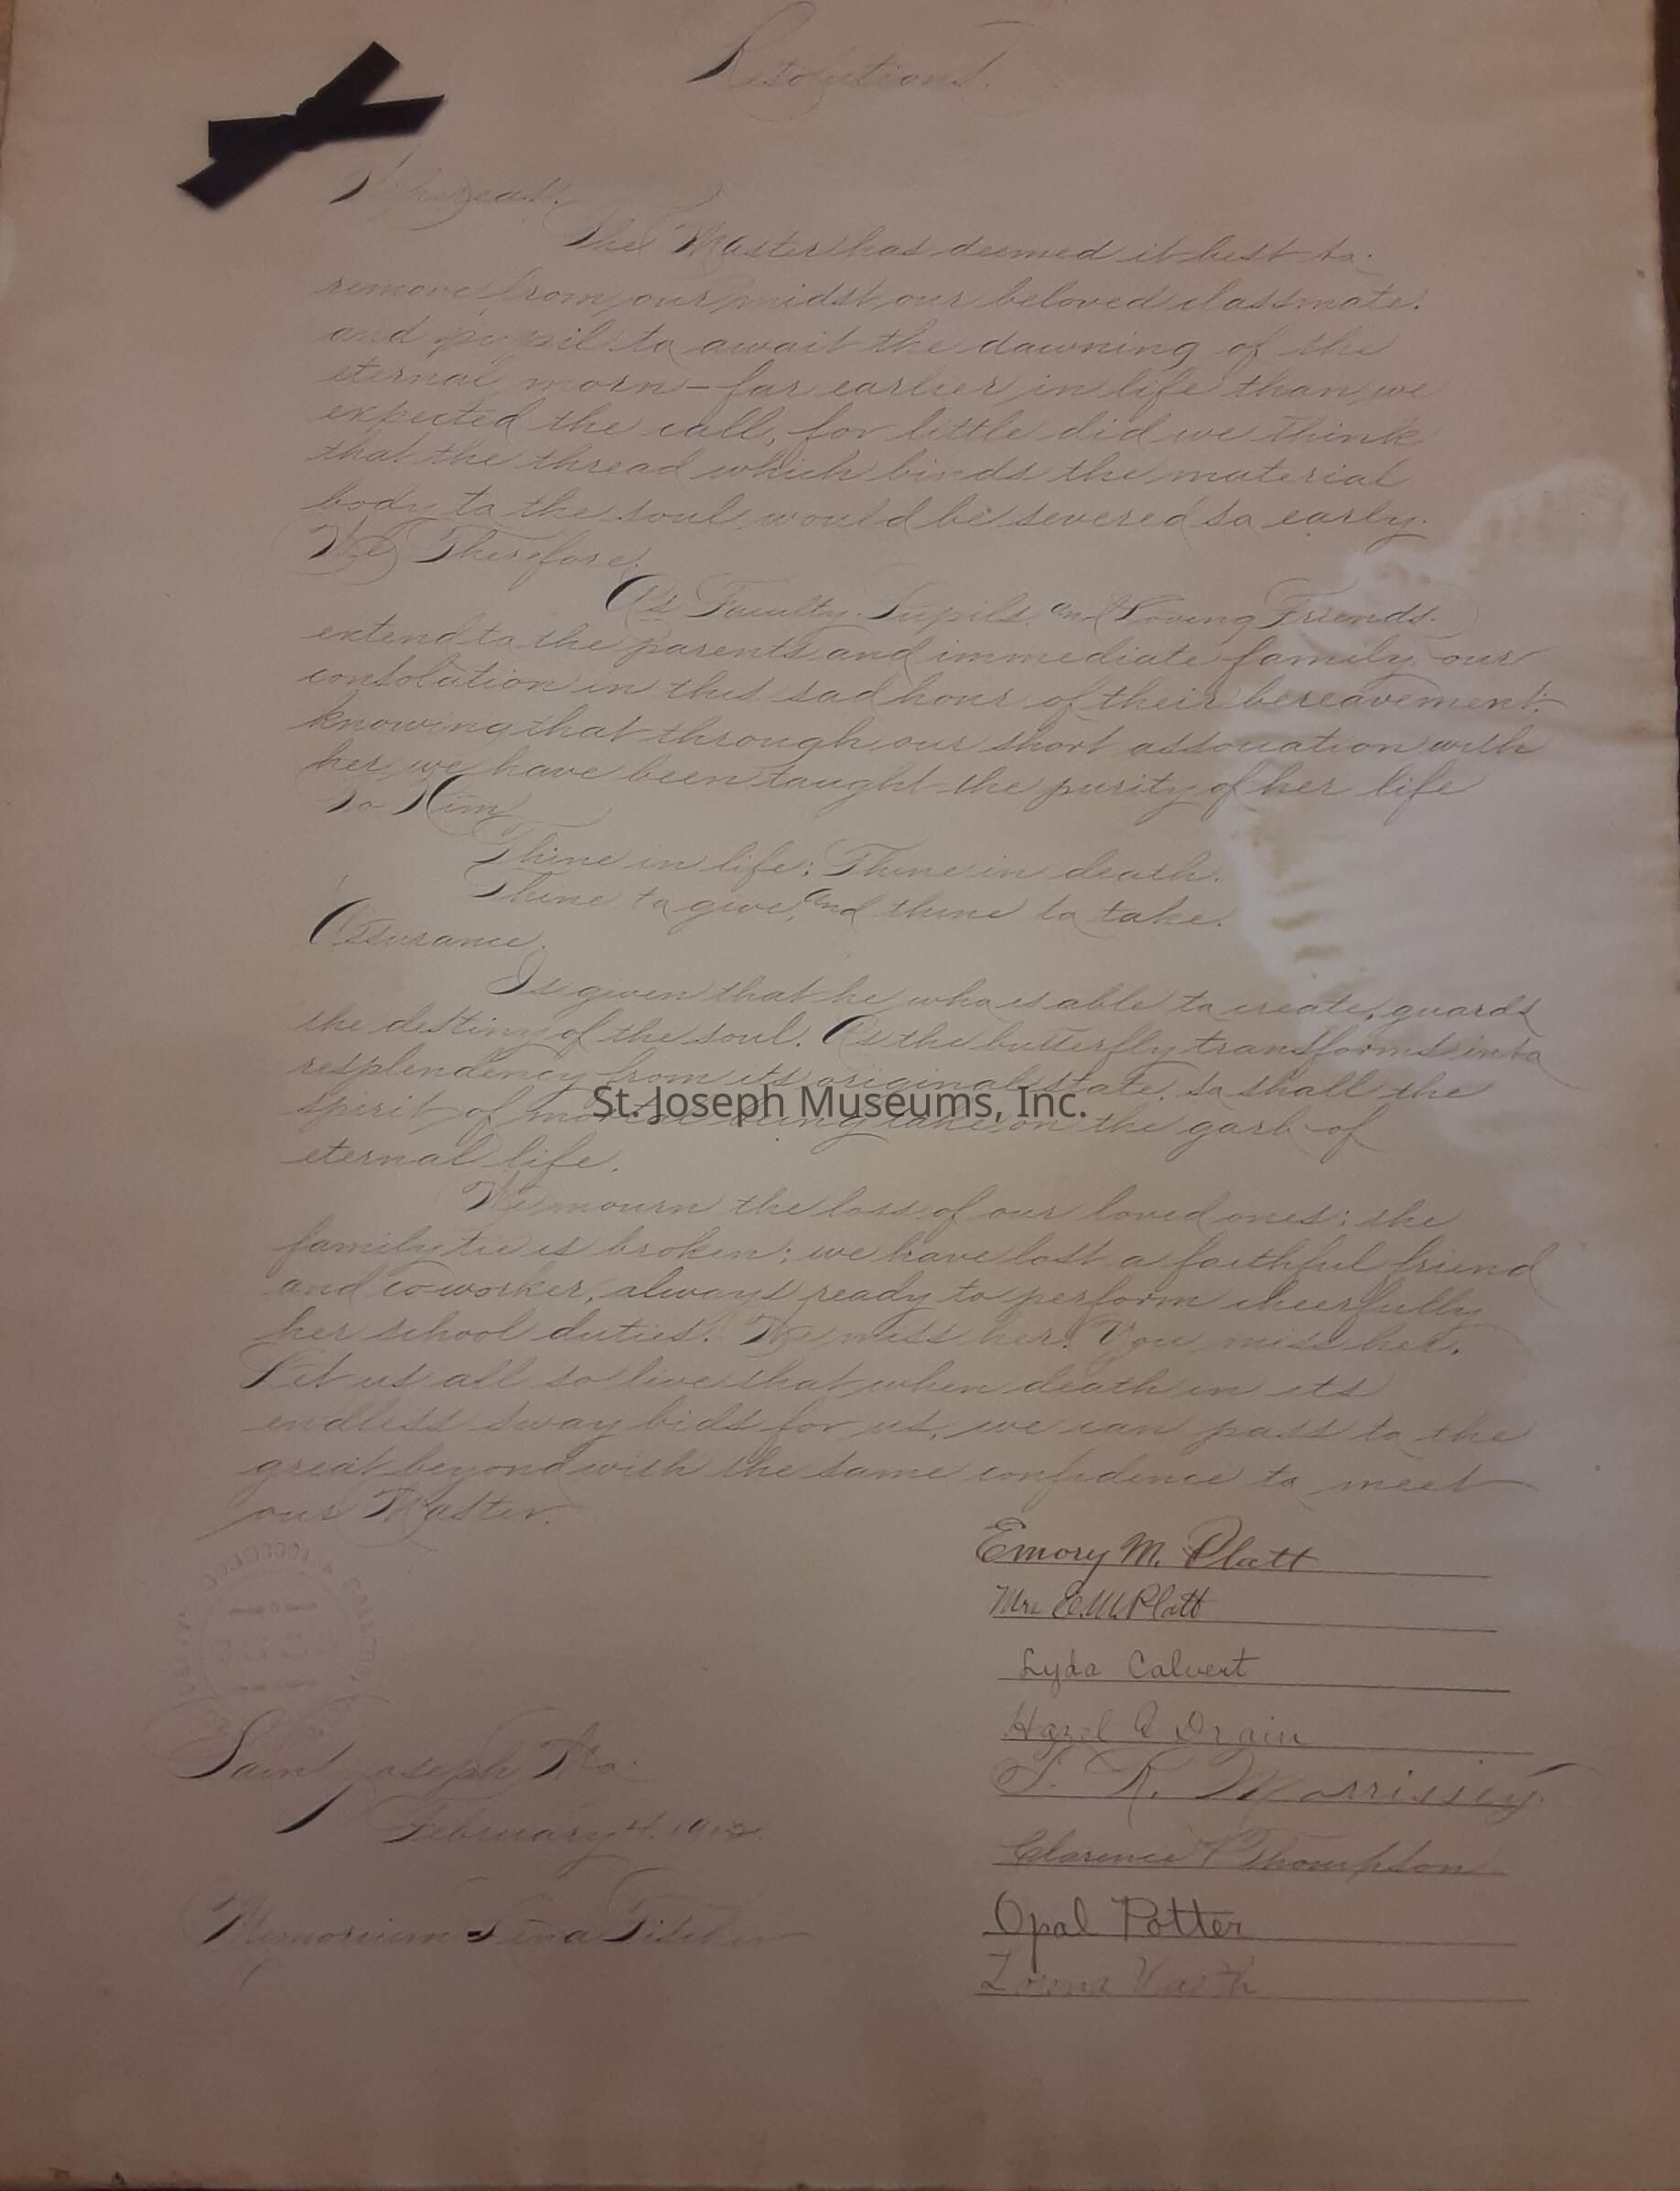 Resolutions.
Whereas:
The Master has deemed it best to
remove from our midst our beloved classmate.
and pupil to await the dawning of the
eternal morn - far earlier in life than we
expected the call, for little did we think
that the thread which binds the material
body to the soul would be severed so early.
We Therefore:
As Faculty. Pupils. and Loving Friends.
extend to the parents and immediate family our
consolation in this sad hour of their bereavement.
knowing that through our short association with
her we have been taught the purity of her life
To Him
Thine in life: Thine in death.
Thine to give, and thine to take.
Assurance.
Is given that he who is able to create, guards
the destiny of the soul. As the butterfly transforms into
resplendency from its original state, so shall the
St. Joseph Museums, Inc.
spirit of mortal being take on the garb of
eternal life.
We mourn the loss of our loved ones; the
family tie is broken; we have lost a faithful friend
and coworker, always ready to perform cheerfully
her school duties. We miss her. You miss her.
Let us all so live that when death in its
endless sway bids for us, we can pass to the
great beyond with the same confidence to meet
our Master.
Emory M. Platt
Mrs E.M. Platt
Lyda Calvert
Hazel Drain
Saint Joseph Mo.
R. Morrissey.
February 4. 1912
Clarence Thompson
Memorium
Opal Potter